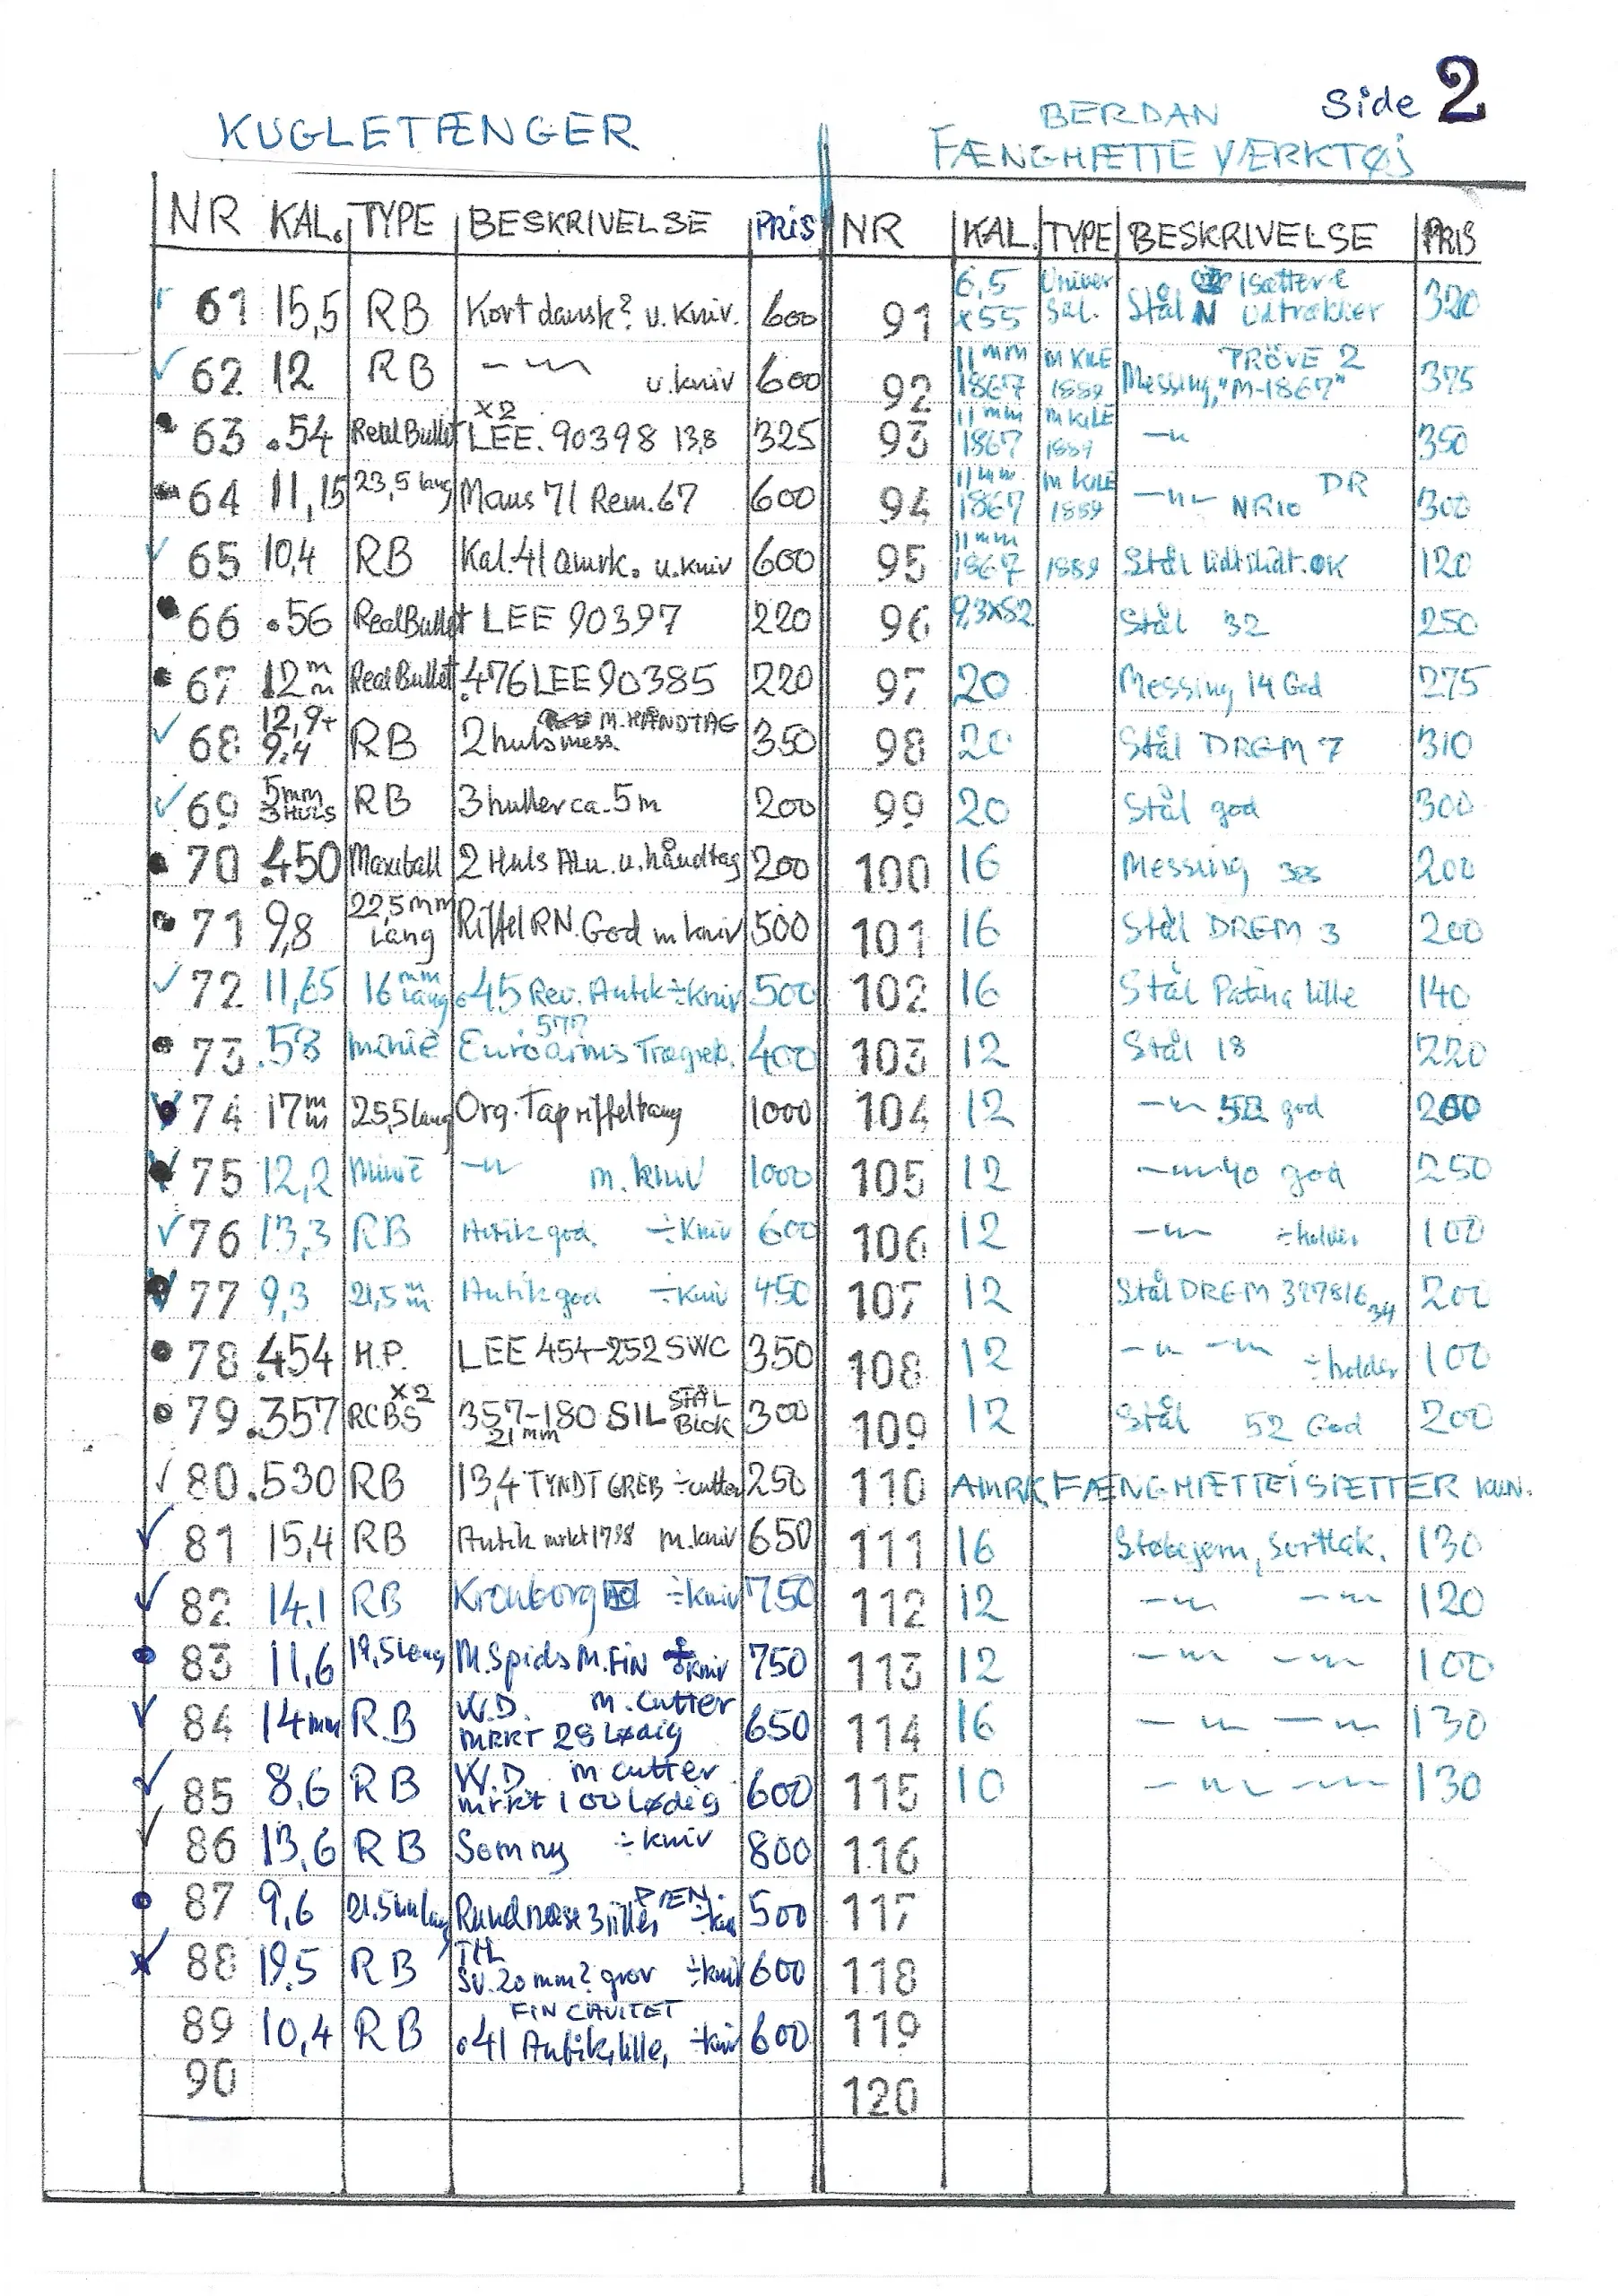 Side 2
KUGLETÆNGER
BERDAN
FÆNGHÆTTE VÆRKTØJ
NR KAL. TYPE BESKRIVELSE PRIS
61 15,5 RB Kort dansk? u. kniv. 600
62 12 RB -"- u. kniv 600
63 .54 Real Bullet X2 LEE. 90398 13,8 325
64 11,15 23,5 lang Maus 71 Rem. 67 600
65 10,4 RB Kal. 41 amrk. u. kniv 600
66 .56 Real Bullet LEE 90397 220
67 12 mm Real Bullet .476 LEE 90385 220
68 12,9+ 9,4 RB 2 huls mess. M. HÅNDTAG 350
69 5mm 3 HULS RB 3 huller ca. 5 m 200
70 .450 Maxiball 2 Huls Alu. u. håndtag 200
71 9,8 22,5 mm Lang Riffel RN. God m kniv 500
72 11,65 16 mm lang .45 Rev. Antik ÷ kniv 500
73 .58 minié Euroarms 577 Trægreb. 400
74 17 mm 25,5 lang Org. Tapriffeltang 1000
75 12,2 Minié -"- m. kniv 1000
76 13,3 RB Antik god. ÷ kniv 600
77 9,3 21,5 mm Antik god ÷ kniv 450
78 .454 H.P. LEE 454-252 SWC 350
79 .357 RCBS X2 357-180 SIL 21 mm STÅL Blok 300
80 .530 RB 13,4 TYNDT GREB ÷ cutter 250
81 15,4 RB Antik mrkt 1798 m. kniv 650
82 14,1 RB Kronborg ÷ kniv 750
83 11,6 19,5 lang M. Spids M. FIN kniv 750
84 14 mm RB W.D. m. cutter MRKT 28 Lødig 650
85 8,6 RB W.D. m cutter mrkt 100 Lødig 600
86 13,6 RB Som ny ÷ kniv 800
87 9,6 21.5 mm lang Rund næse 3 riller PÆN. 500
88 19.5 RB TH SV. 20 mm? grov ÷ kniv 600
89 10,4 RB FIN CAVITET .41 Antik, lille, ÷ kniv 600
90
NR KAL. TYPE BESKRIVELSE PRIS
91 6,5 x55 Univer sal. Stål N Isætter & Udtrækker 320
92 11 mm 1867 M KILE 1889 Messing, "M-1867" PRÖVE 2 375
93 11 mm 1867 M KILE 1889 -"- 350
94 11 mm 1867 M KILE 1889 -"- NR 10 DR 300
95 11 mm 1867 1889 Stål lidt slidt. OK 120
96 9,3x82 Stål 32 250
97 20 Messing 14 God 275
98 20 Stål DREM 7 310
99 20 Stål god 300
100 16 Messing 200
101 16 Stål DREM 3 200
102 16 Stål Patina lille 140
103 12 Stål 18 220
104 12 -"- 52 god 200
105 12 -"- 40 god 250
106 12 -"- ÷ holder 100
107 12 Stål DREM 327816 34 200
108 12 -"- -"- ÷ holder 100
109 12 Stål 52 God 200
110 AMRK FÆNGHÆTTEISÆTTER KUN.
111 16 Støbejern, Sortlak. 130
112 12 -"- -"- 120
113 12 -"- -"- 100
114 16 -"- -"- 130
115 10 -"- -"- 130
116
117
118
119
120